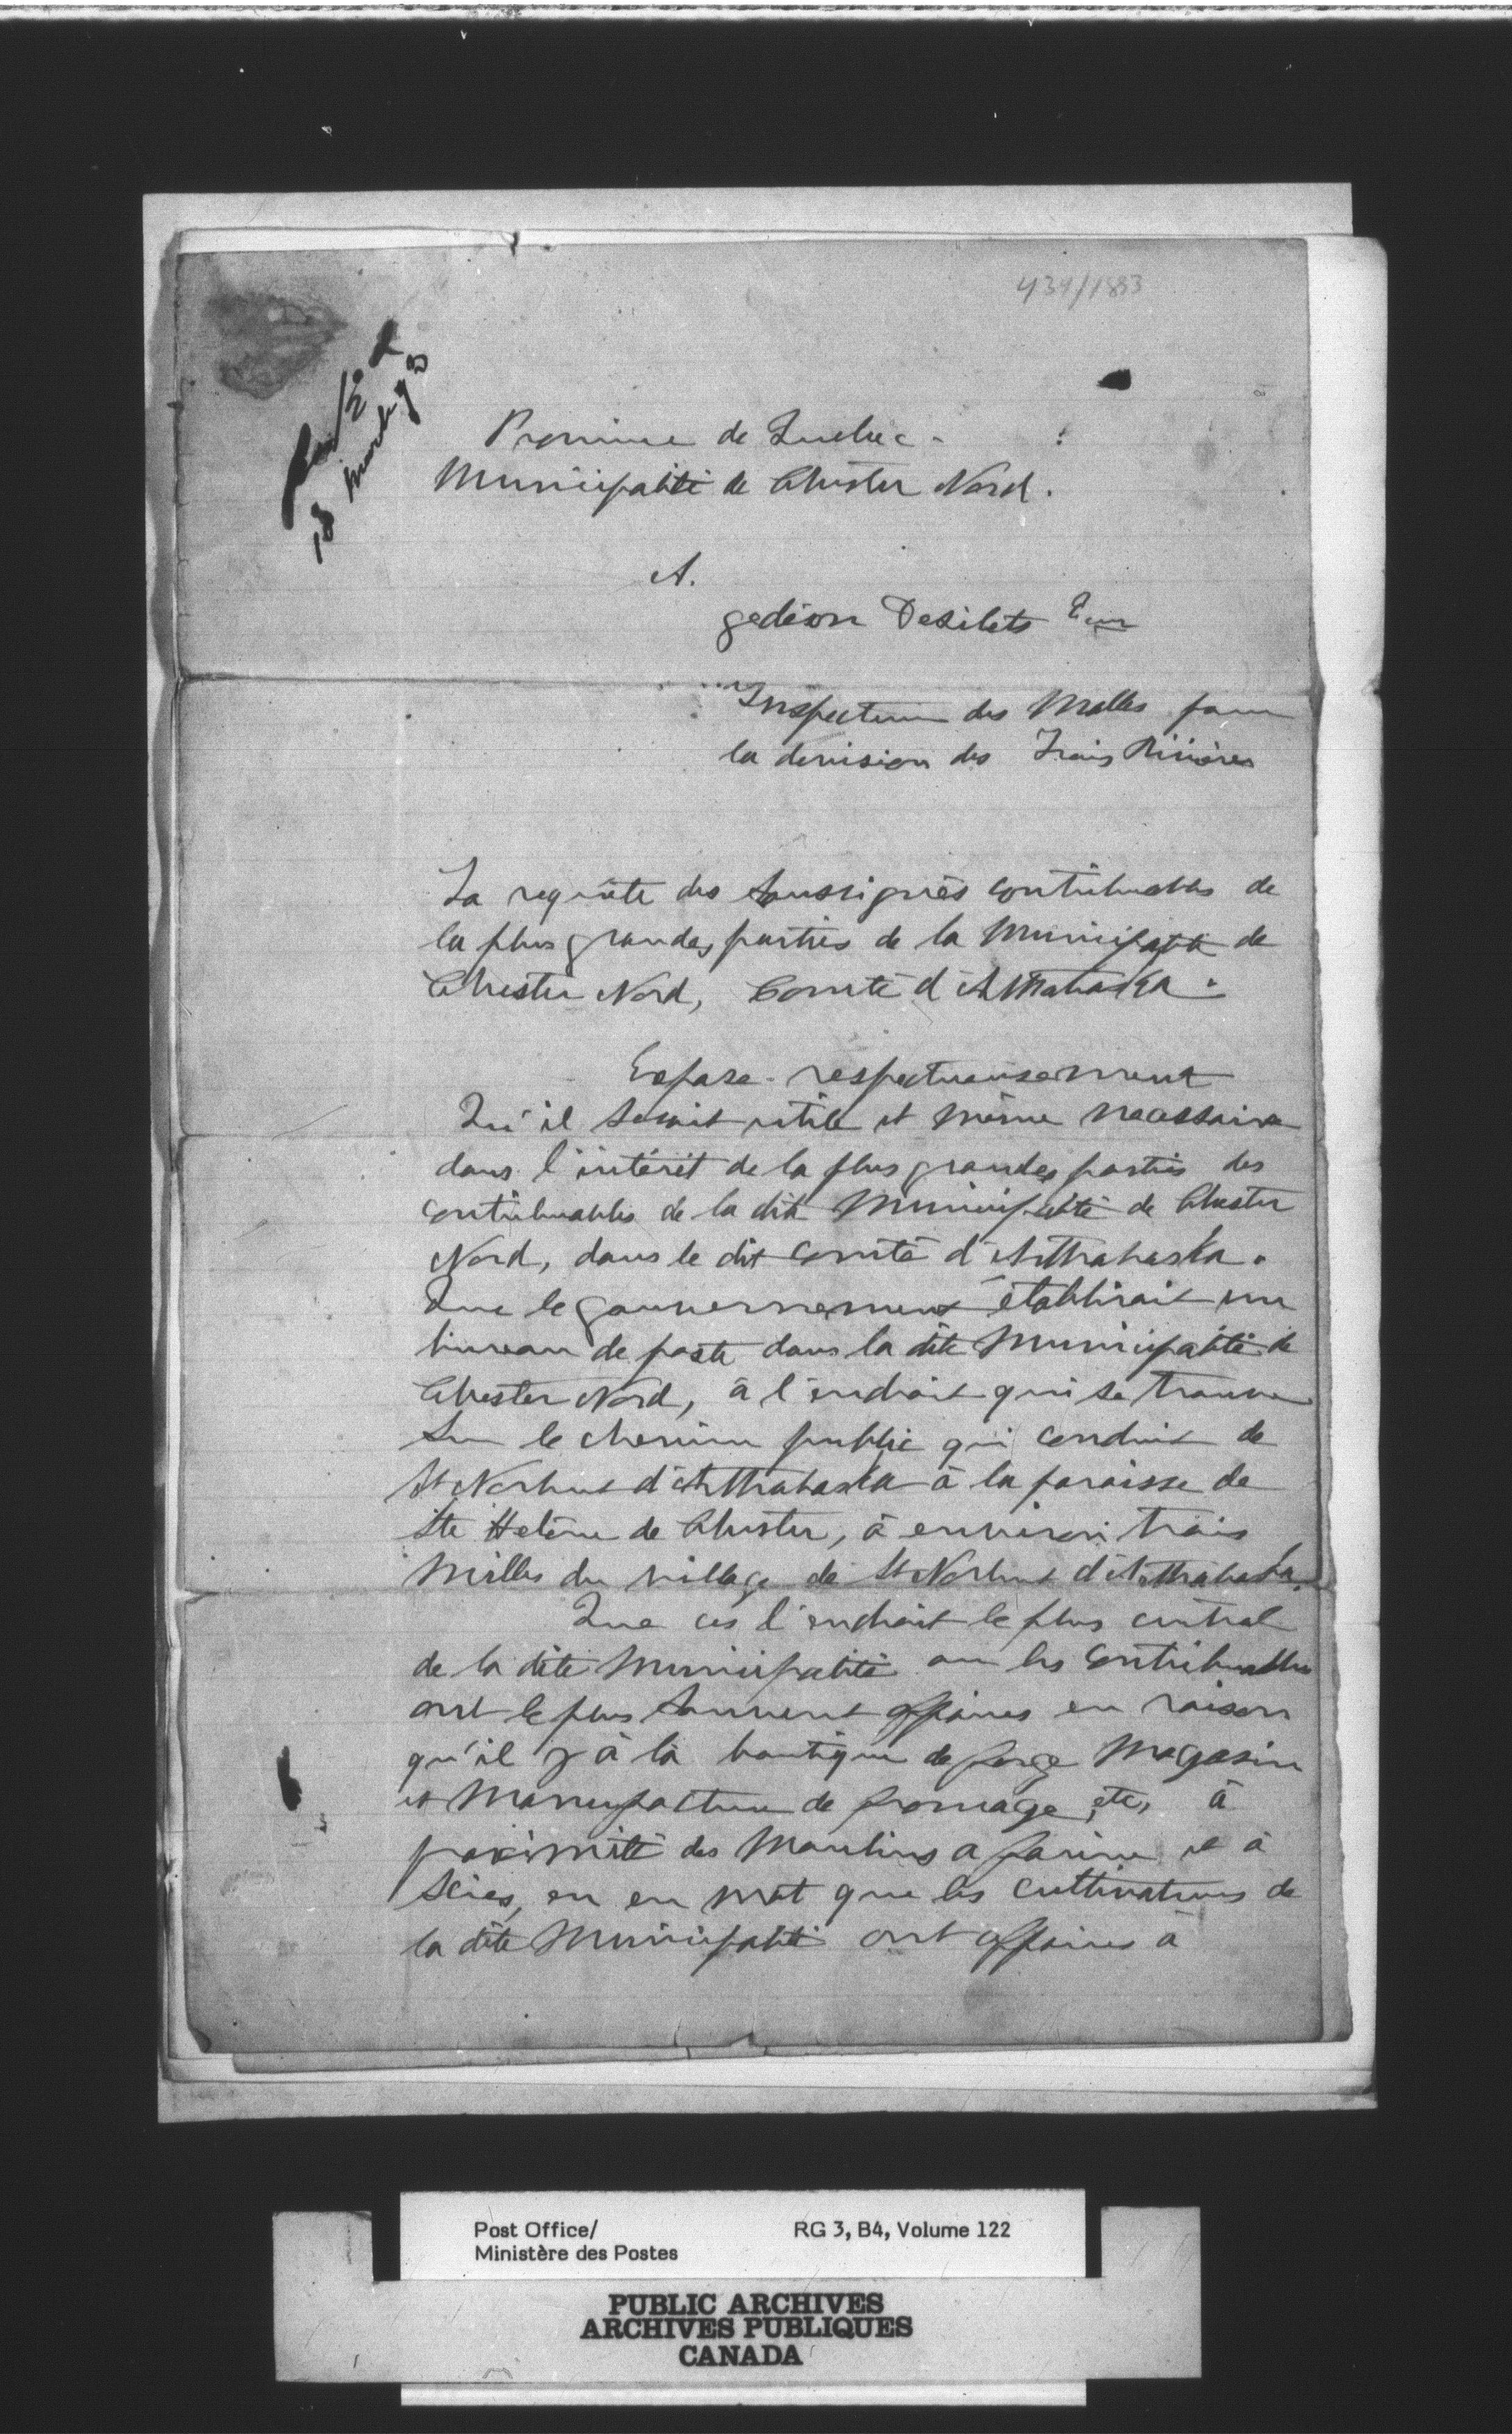 434/1893
18 March 93
Province de Quebec -
Municipalité de Chester Nord.
A.
gedéon Desilets Ecur
Inspecteur des Malles pour
la devision des Trois Rivières
La requête des Soussignés contribuables de
la plus grandes parties de la Municipalité de
Chester Nord, Comté d'Arthabaska.
Expose - respectueusement
Qu'il serait utile et même necessaire
dans l'intérêt de la plus grandes parties des
contribuables de la dite Municipalité de Chester
Nord, dans le dit comté d'Arthabaska.
Que le gouvernement établirait un
bureau de poste dans la dite Municipalité de
Chester Nord, à l'endroit qui se trouve
Sur le chemin public qui conduit de
St Norbert d'Arthabaska à la paroisse de
Ste Heléne de Chester, à environ trois
Milles du village de St Norbert d'Arthabaska.
Que ces l'endroit le plus central
de la dite Municipalité ou les Contribuables
ont le plus souvent affaires en raison
qu'il y à là boutique de forge Magasin
et Manufacture de fromage, etc, à
proximité des Moulins a farine et à
Scies, en en mot que les cultivateurs de
la dite Municipalité ont affaires à
Post Office/ RG 3, B4, Volume 122
Ministère des Postes
PUBLIC ARCHIVES
ARCHIVES PUBLIQUES
CANADA